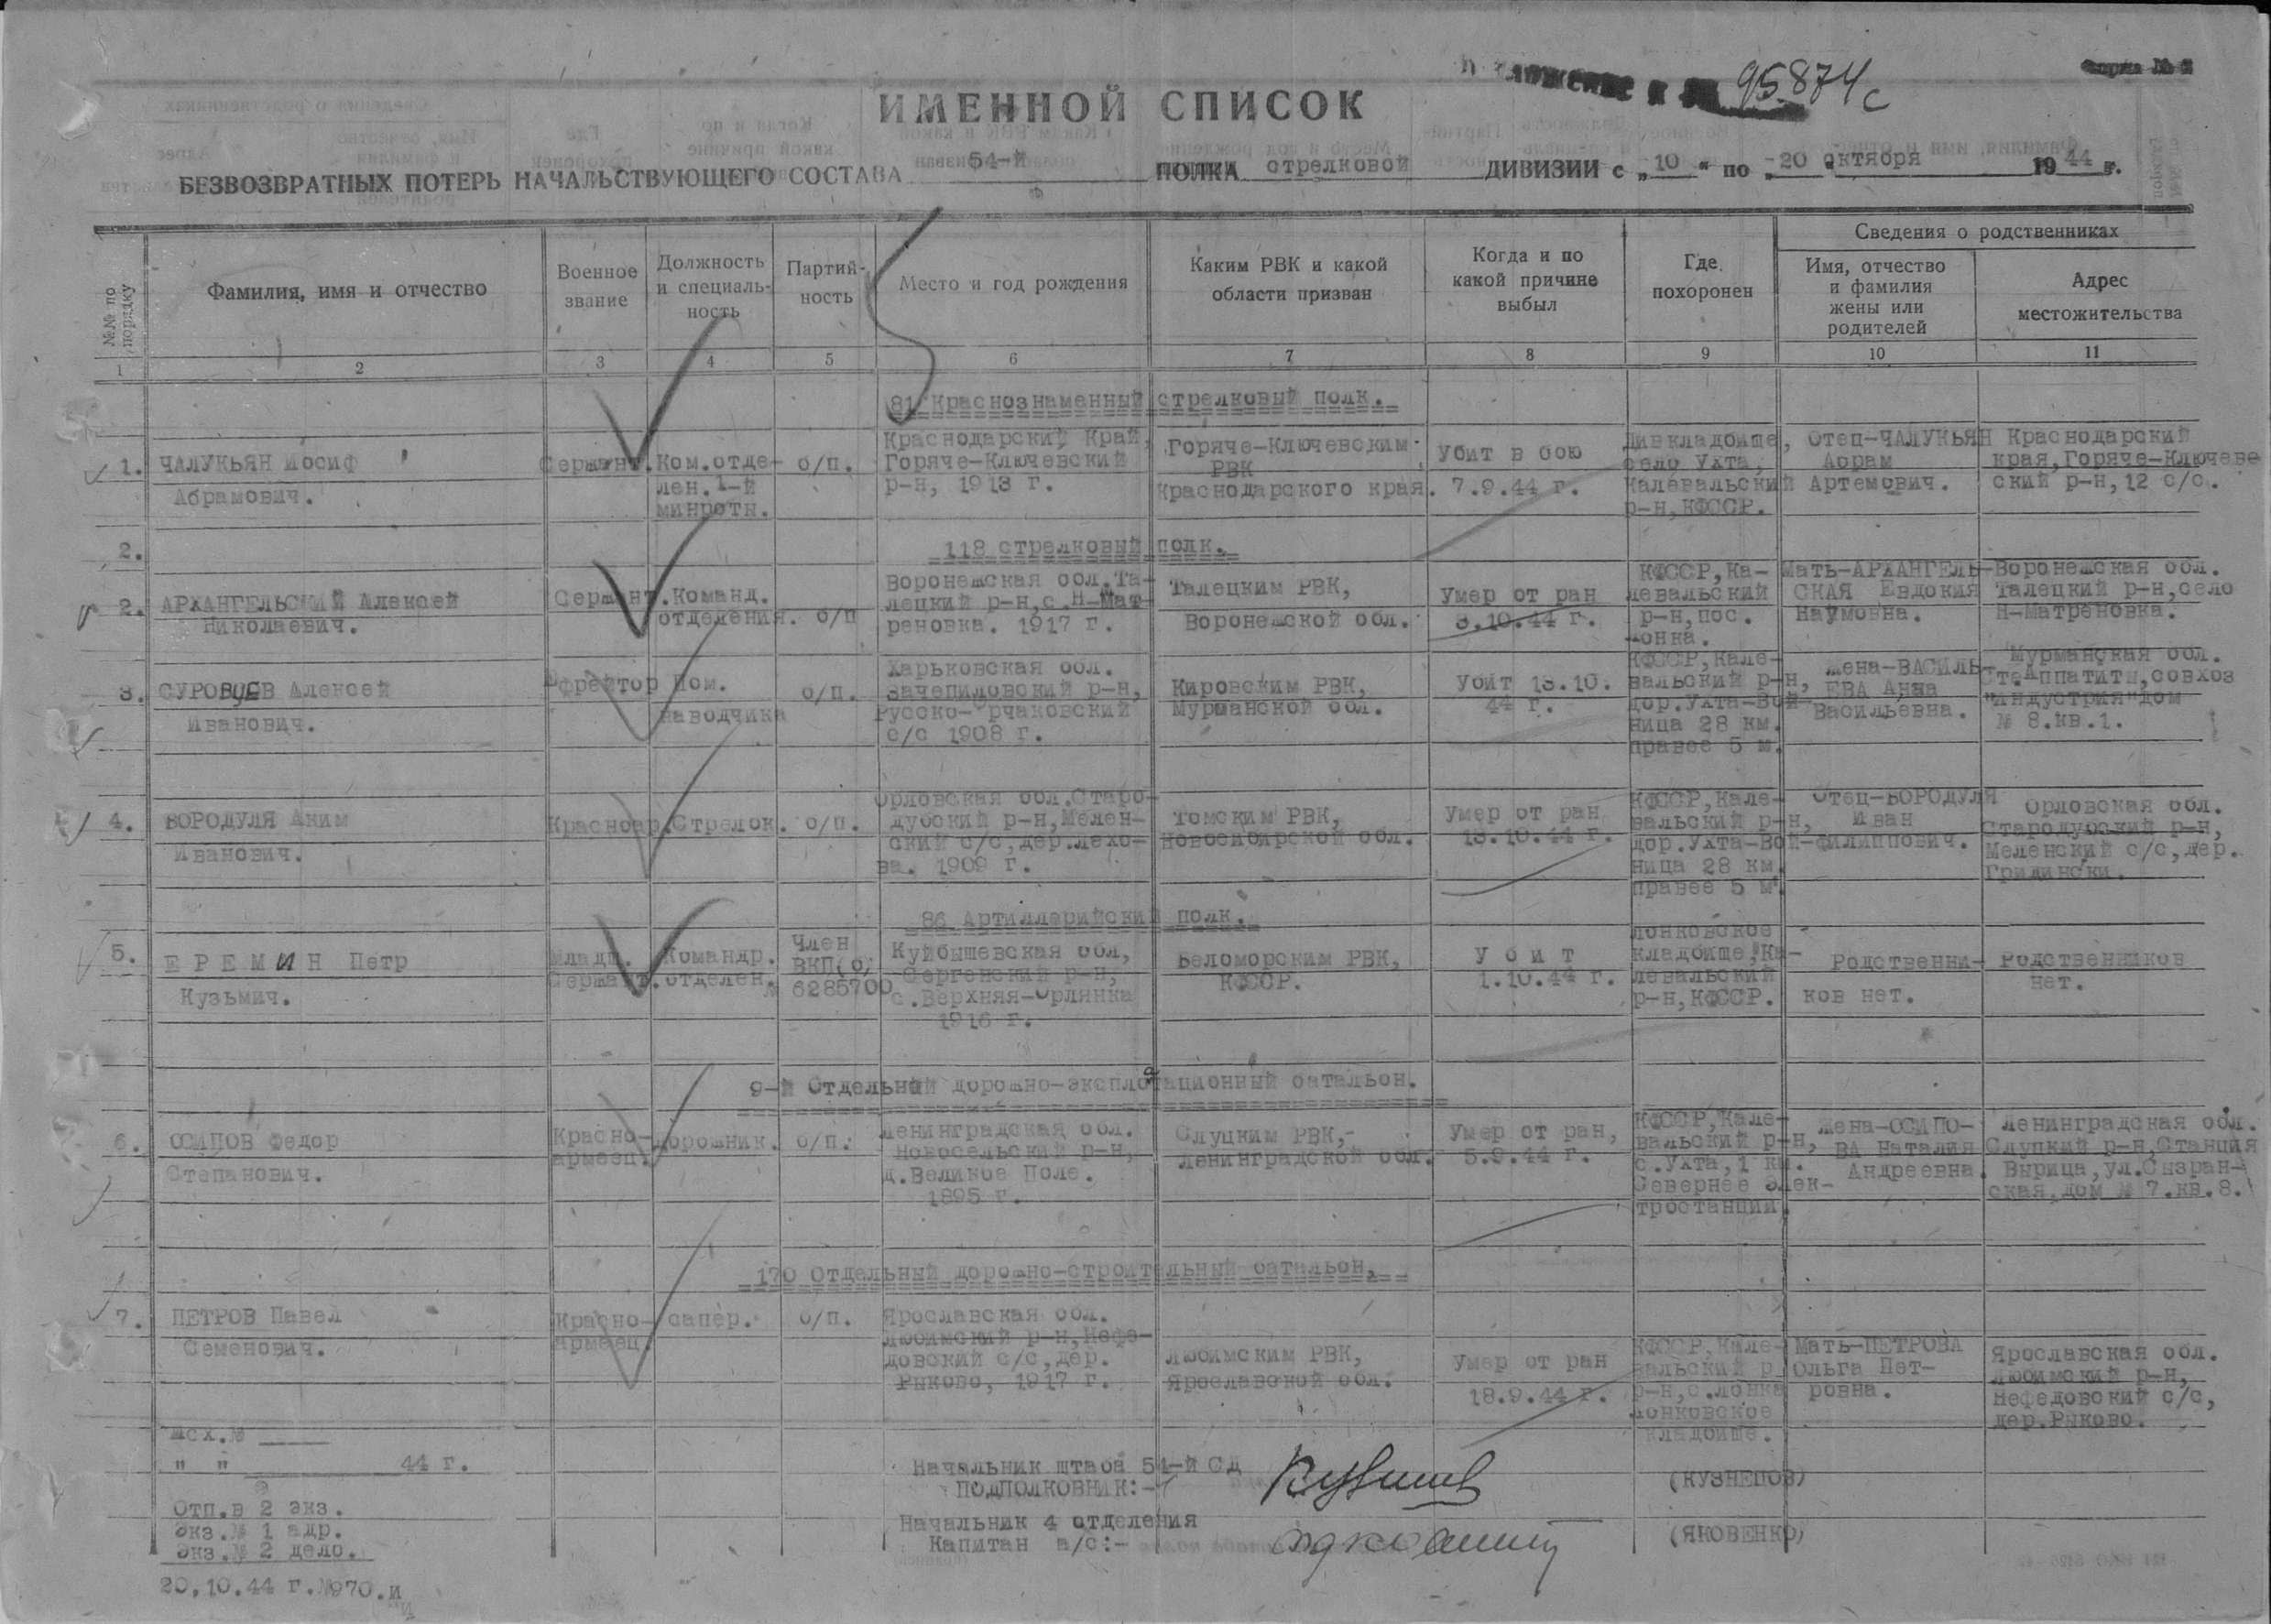 95874с
ИМЕННОЙ СПИСОК
БЕЗВОЗВРАТНЫХ ПОТЕРЬ НАЧАЛЬСТВУЮЩЕГО СОСТАВА 54-й ПОЛКА стрелковой ДИВИЗИИ с „10“ по „20“ октября 1944 г.
№№ по порядку
Фамилия, имя и отчество
Военное звание
Должность и специаль-
ность
Партий-
ность
Место и год рождения
Каким РВК и какой
области призван
Когда и по
какой причине
выбыл
Где
похоронен
Сведения о родственниках
Имя, отчество
и фамилия
жены или
родителей
Адрес
местожительства
1 2 3 4 5 6 7 8 9 10 11
81 Краснознаменный стрелковый полк.
1.
ЧАЛУКЬЯН Иосиф
Абрамович.
Сержант.
Ком.отде-
лен. 1-й
минроты.
о/п.
Краснодарский Край,
Горяче-Ключевский
р-н, 1913 г.
Горяче-Ключевским
РВК
Краснодарского края.
Убит в бою
7.9.44 г.
Дивкладбище,
село Ухта,
Калевальский
р-н,КФССР.
Отец-ЧАЛУКЬЯН
Абрам
Артемович.
Краснодарский
края,Горяче-Ключеве
ский р-н,12 с/с.
2.
118 стрелковый полк.
2.
АРХАНГЕЛЬСКИЙ Алексей
Николаевич.
Сержант.
Команд.
отделения.
о/п
Воронежская обл.Та-
лецкий р-н,с.Н-Мат-
реновка. 1917 г.
Талецким РВК,
Воронежской обл.
Умер от ран
8.10.44 г.
КФССР,Ка-
левальский
р-н,пос.
Лонка.
Мать-АРХАНГЕЛЬ-
СКАЯ Евдокия
Наумовна.
Воронежская обл.
Талецкий р-н,село
Н-Матреновка.
3.
СУРОВЦЕВ Алексей
Иванович.
Ефрейтор
Пом.
наводчика
о/п.
Харьковская обл.
Зачепиловский р-н,
Русско-Орчаковский
с/с 1908 г.
Кировским РВК,
Мурманской обл.
Убит 13.10.
44 г.
КФССР,Кале-
вальский р-н,
дор.Ухта-Вой-
ница 28 км.
правее 5 м.
Жена-ВАСИЛЬ-
ЕВА Анна
Васильевна.
Мурманская обл.
Ст.Аппатиты,совхоз
"Индустрия"дом
№ 8.кв.1.
4.
БОРОДУЛЯ Аким
Иванович.
Красноар.
Стрелок.
о/п.
Орловская обл.Старо-
дубский р-н,Мелен-
ский с/с,дер.Ляхо-
ва. 1909 г.
Томским РВК,
Новосибирской обл.
Умер от ран
13.10.44 г.
КФССР,Кале-
вальский р-н,
дор.Ухта-Вой-
ница 28 км.
правее 5 м.
Отец-БОРОДУЛЯ
Иван
Филиппович.
Орловская обл.
Стародубский р-н,
Меленский с/с,дер.
86 Артиллерийский полк.
5.
ЕРЕМИН Петр
Кузьмич.
Младш.
Сержант.
Командр.
отделен.
Член
ВКП(б)
№ 6285700
Куйбышевская обл,
Сергенский р-н,
с.Верхняя-Орлянка
1916 г.
Беломорским РВК,
КФССР.
Убит
1.10.44 г.
Лонковское
кладбище,Ка-
левальский
р-н,КФССР.
Родственни-
ков нет.
Родственников
нет.
9-й Отдельный дорожно-эксплоатационный батальон.
6.
ОСИПОВ Федор
Степанович.
Красно-
армеец.
Дорожник.
о/п.
Ленинградская обл.
Новосельский р-н,
д.Великое Поле.
1895 г.
Слуцким РВК,-
Ленинградской обл.
Умер от ран,
5.9.44 г.
КФССР,Кале-
вальский р-н,
с.Ухта,1 км.
Севернее Элек-
тростанции.
Жена-ОСИПО-
ВА Наталия
Андреевна.
Ленинградская обл.
Слуцкий р-н,Станция
Вырица,ул.Сызран-
ская,дом № 7.кв.8.
170 Отдельный дорожно-строительный батальон.
7.
ПЕТРОВ Павел
Семенович.
Красно-
армеец.
сапер.
о/п.
Ярославская обл.
Любимский р-н,Нефе-
довский с/с,дер.
Рыково, 1917 г.
Любимским РВК,
Ярославской обл.
Умер от ран
18.9.44 г.
КФССР,Кале-
вальский р
р-н,с.Лонка
Лонковское
кладбище.
Мать-ПЕТРОВА
Ольга Пет-
ровна.
Ярославская обл.
Любимский р-н,
Нефедовский с/с,
дер.Рыково.
Исх.№ ____
" " ________ 44 г.
Отп.в 2 экз.
Экз.№ 1 адр.
Экз.№ 2 дело.
20.10.44 г.№970.и
Начальник штаба 54-й СД
ПОДПОЛКОВНИК:-
(КУЗНЕЦОВ)
Начальник 4 отделения
Капитан а/с:-
(ЯКОВЕНКО)